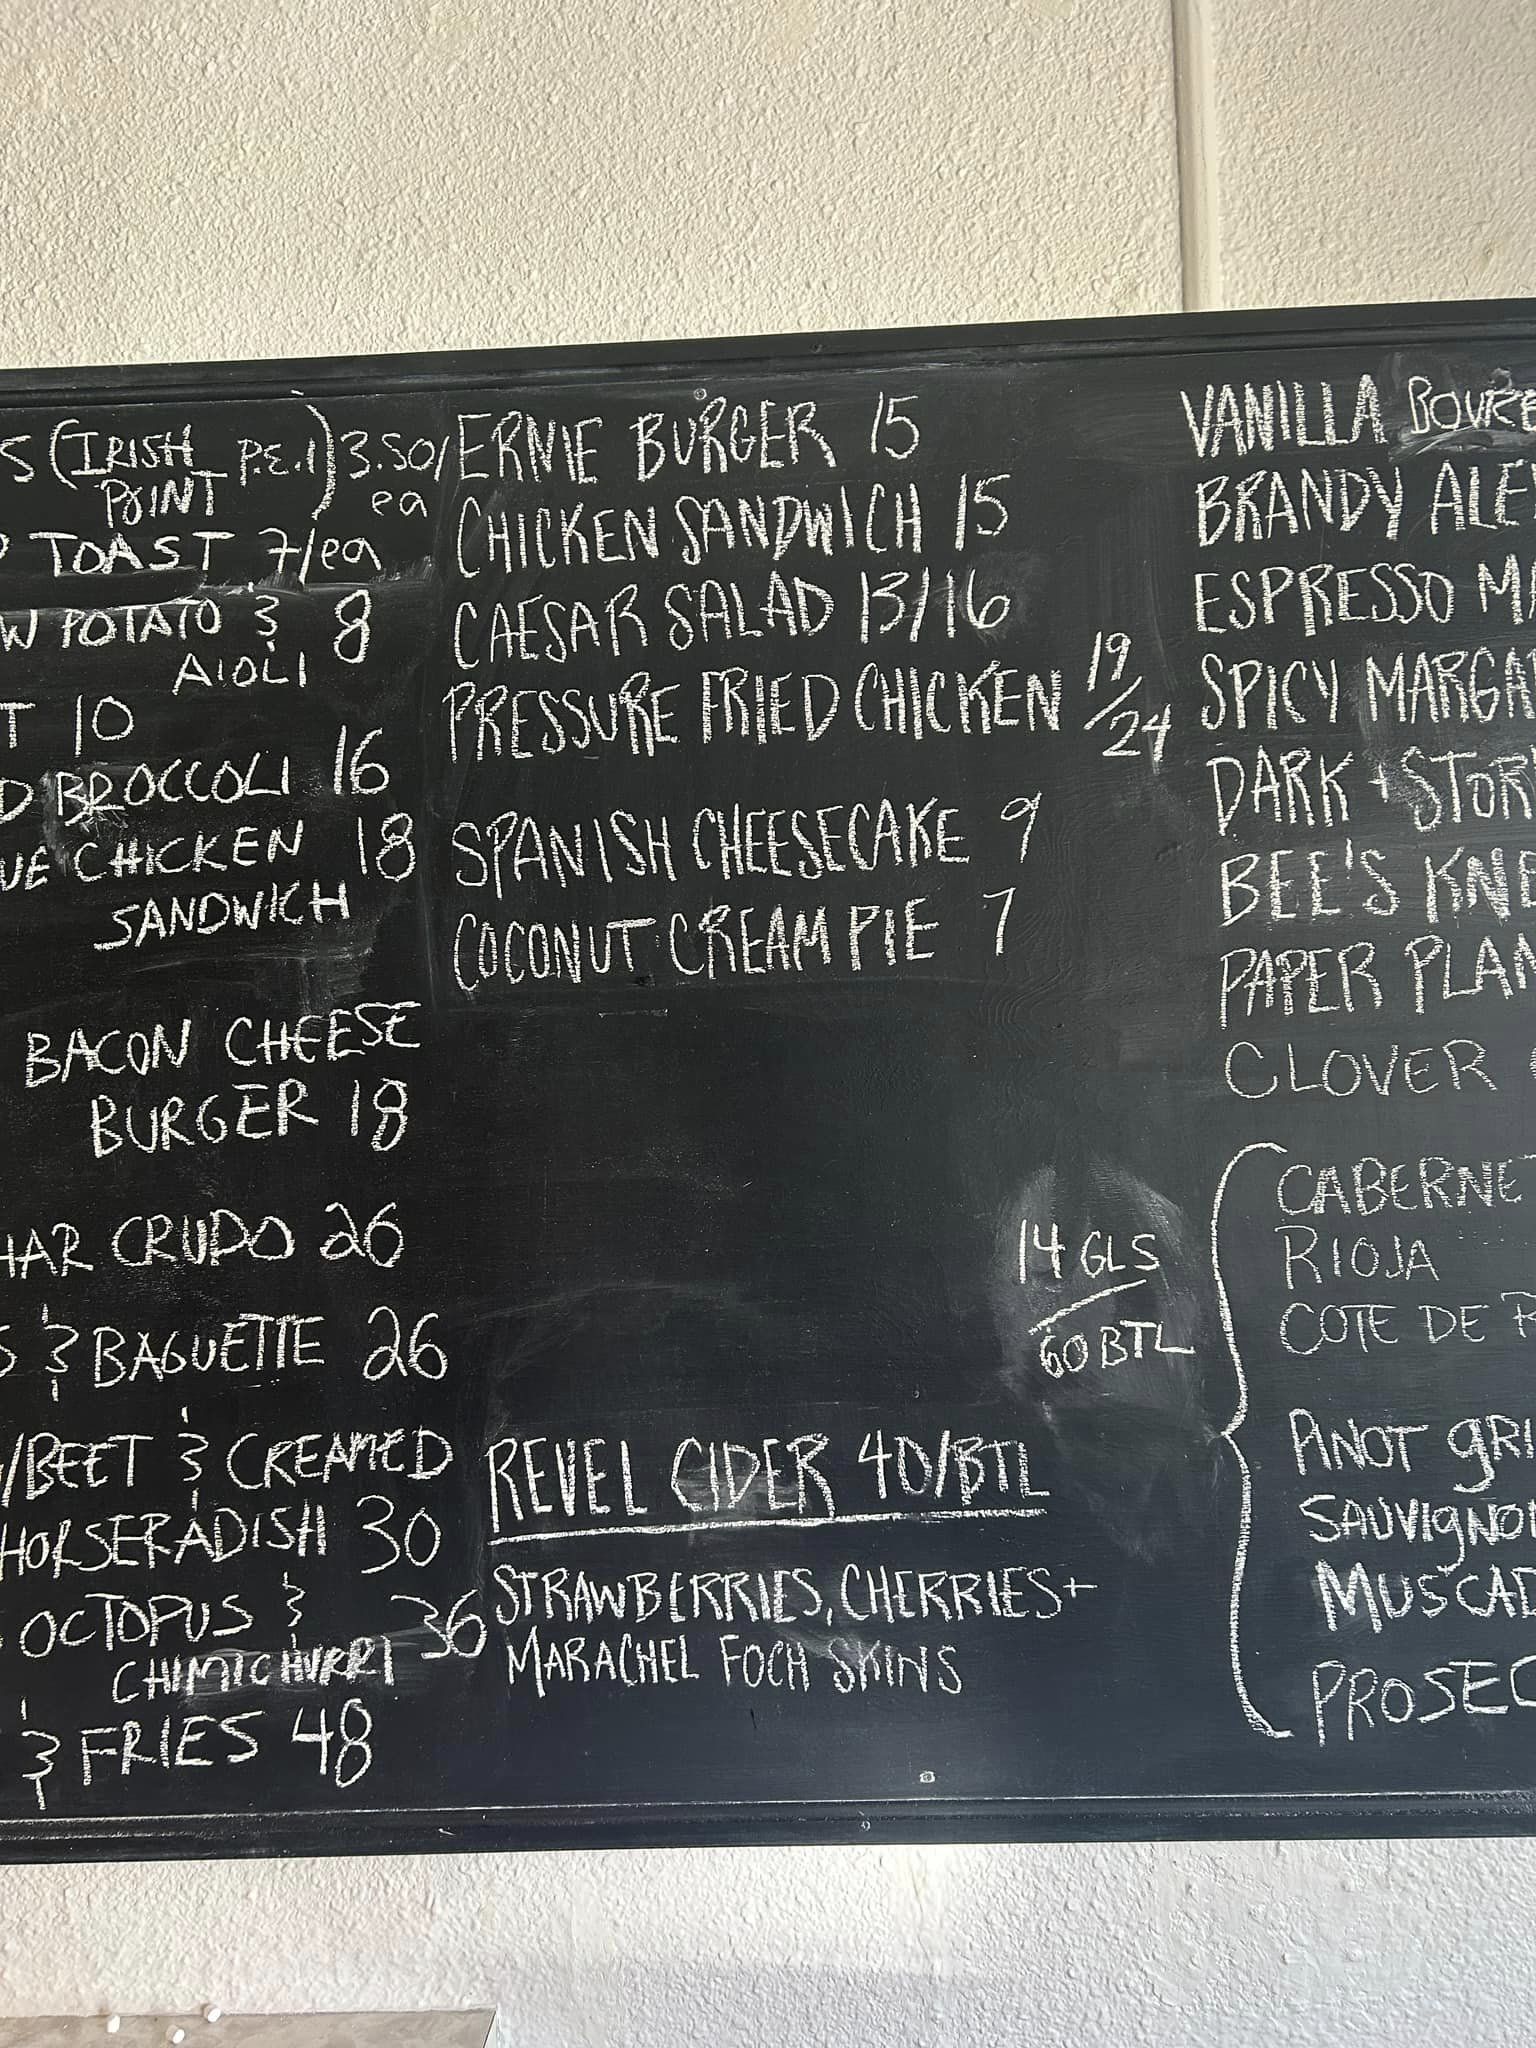 S (IRISH P.E.I) 3.50/
POINT ea
TOAST 7/ea
W POTATO & 8
AIOLI
T 10
D BROCCOLI 16
UE CHICKEN 18
SANDWICH
BACON CHEESE
BURGER 18
HAR CRUDO 26
S & BAGUETTE 26
/BEET & CREAMED
HORSERADISH 30
OCTOPUS & 36
CHIMICHURRI
& FRIES 48
ERNIE BURGER 15
CHICKEN SANDWICH 15
CAESAR SALAD 13/16
PRESSURE FRIED CHICKEN 19/24
SPANISH CHEESECAKE 9
COCONUT CREAM PIE 7
REVEL CIDER 40/BTL
STRAWBERRIES, CHERRIES +
MARACHEL FOCH SKINS
VANILLA
BRANDY ALE
ESPRESSO MA
SPICY MARGA
DARK + STOR
BEE'S KNE
PAPER PLAN
CLOVER
14 GLS
60 BTL
CABERNE
RIOJA
COTE DE R
PINOT GRI
SAUVIGNO
MUSCAD
PROSEC